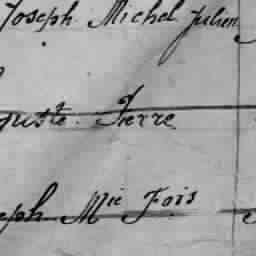 Joseph Michel Julien
guste Pierre
eph Mie Fois